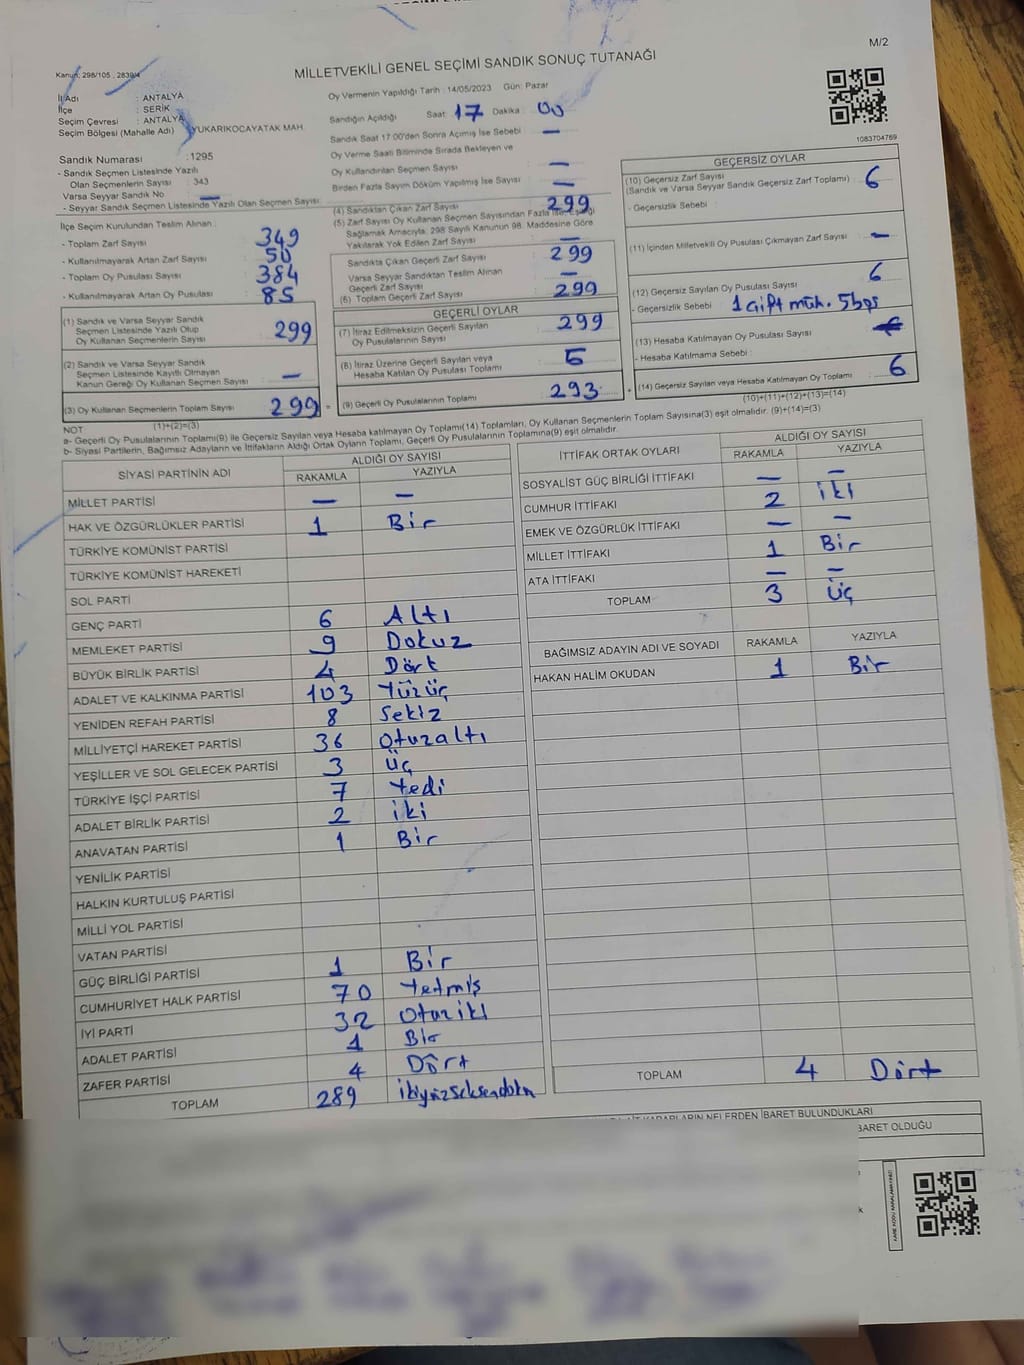 M/2
Kanun: 298/105 , 2839/4
MİLLETVEKİLİ GENEL SEÇİMİ SANDIK SONUÇ TUTANAĞI
İl Adı : ANTALYA
İlçe : SERİK
Seçim Çevresi : ANTALYA
Seçim Bölgesi (Mahalle Adı) YUKARIKOCAYATAK MAH.
Oy Vermenin Yapıldığı Tarih : 14/05/2023 Gün: Pazar
Sandığın Açıldığı Saat: 17 Dakika : 00
Sandık Saat 17.00'den Sonra Açılmış İse Sebebi —
Oy Verme Saati Bitiminde Sırada Bekleyen ve
Oy Kullandırılan Seçmen Sayısı —
Birden Fazla Sayım Döküm Yapılmış İse Sayısı —
1083704769
Sandık Numarası : 1295
- Sandık Seçmen Listesinde Yazılı
Olan Seçmenlerin Sayısı : 343
Varsa Seyyar Sandık No —
- Seyyar Sandık Seçmen Listesinde Yazılı Olan Seçmen Sayısı
İlçe Seçim Kurulundan Teslim Alınan :
- Toplam Zarf Sayısı : 349
- Kullanılmayarak Artan Zarf Sayısı : 50
- Toplam Oy Pusulası Sayısı : 384
- Kullanılmayarak Artan Oy Pusulası : 85
(1) Sandık ve Varsa Seyyar Sandık
Seçmen Listesinde Yazılı Olup
Oy Kullanan Seçmenlerin Sayısı : 299
(2) Sandık ve Varsa Seyyar Sandık
Seçmen Listesinde Kayıtlı Olmayan
Kanun Gereği Oy Kullanan Seçmen Sayısı : —
(3) Oy Kullanan Seçmenlerin Toplam Sayısı 299
(1)+(2)=(3)
(4) Sandıktan Çıkan Zarf Sayısı : 299
(5) Zarf Sayısı Oy Kullanan Seçmen Sayısından Fazla İse, Eşitliği
Sağlamak Amacıyla; 298 Sayılı Kanunun 98. Maddesine Göre
Yakılarak Yok Edilen Zarf Sayısı : —
Sandıkta Çıkan Geçerli Zarf Sayısı : 299
Varsa Seyyar Sandıktan Teslim Alınan
Geçerli Zarf Sayısı : —
(6) Toplam Geçerli Zarf Sayısı : 299
GEÇERLİ OYLAR
(7) İtiraz Edilmeksizin Geçerli Sayılan
Oy Pusulalarının Sayısı : 299
(8) İtiraz Üzerine Geçerli Sayılan veya
Hesaba Katılan Oy Pusulası Toplamı :
(9) Geçerli Oy Pusulalarının Toplamı : 293
GEÇERSİZ OYLAR
(10) Geçersiz Zarf Sayısı
(Sandık ve Varsa Seyyar Sandık Geçersiz Zarf Toplamı) : 6
- Geçersizlik Sebebi :
(11) İçinden Milletvekili Oy Pusulası Çıkmayan Zarf Sayısı : —
(12) Geçersiz Sayılan Oy Pusulası Sayısı : 6
- Geçersizlik Sebebi : 1 Çift müh. 5 boş
(13) Hesaba Katılmayan Oy Pusulası Sayısı
- Hesaba Katılmama Sebebi :
(14) Geçersiz Sayılan veya Hesaba Katılmayan Oy Toplamı : 6
(10)+(11)+(12)+(13)=(14)
NOT
a- Geçerli Oy Pusulalarının Toplamı(9) ile Geçersiz Sayılan veya Hesaba katılmayan Oy Toplamı(14) Toplamları, Oy Kullanan Seçmenlerin Toplam Sayısına(3) eşit olmalıdır. (9)+(14)=(3)
b- Siyasi Partilerin, Bağımsız Adayların ve İttifakların Aldığı Ortak Oyların Toplamı, Geçerli Oy Pusulalarının Toplamına(9) eşit olmalıdır.
SİYASİ PARTİNİN ADI ALDIĞI OY SAYISI
RAKAMLA YAZIYLA
MİLLET PARTİSİ — —
HAK VE ÖZGÜRLÜKLER PARTİSİ 1 Bir
TÜRKİYE KOMÜNİST PARTİSİ
TÜRKİYE KOMÜNİST HAREKETİ
SOL PARTİ
GENÇ PARTİ 6 Altı
MEMLEKET PARTİSİ 9 Dokuz
BÜYÜK BİRLİK PARTİSİ 4 Dört
ADALET VE KALKINMA PARTİSİ 103 Yüzüç
YENİDEN REFAH PARTİSİ 8 Sekiz
MİLLİYETÇİ HAREKET PARTİSİ 36 Otuzaltı
YEŞİLLER VE SOL GELECEK PARTİSİ 3 Üç
TÜRKİYE İŞÇİ PARTİSİ 7 Yedi
ADALET BİRLİK PARTİSİ 2 iki
ANAVATAN PARTİSİ 1 Bir
YENİLİK PARTİSİ
HALKIN KURTULUŞ PARTİSİ
MİLLİ YOL PARTİSİ
VATAN PARTİSİ
GÜÇ BİRLİĞİ PARTİSİ 1 Bir
CUMHURİYET HALK PARTİSİ 70 Yetmiş
İYİ PARTİ 32 Otuziki
ADALET PARTİSİ 1 Bir
ZAFER PARTİSİ 4 Dört
TOPLAM 289
İTTİFAK ORTAK OYLARI ALDIĞI OY SAYISI
RAKAMLA YAZIYLA
SOSYALİST GÜÇ BİRLİĞİ İTTİFAKI — —
CUMHUR İTTİFAKI 2 iki
EMEK VE ÖZGÜRLÜK İTTİFAKI — —
MİLLET İTTİFAKI 1 Bir
ATA İTTİFAKI — —
TOPLAM 3 Üç
BAĞIMSIZ ADAYIN ADI VE SOYADI RAKAMLA YAZIYLA
HAKAN HALİM OKUDAN 1 Bir
TOPLAM 4 Dört
KARARLARIN NELERDEN İBARET BULUNDUKLARI
BARET OLDUĞU